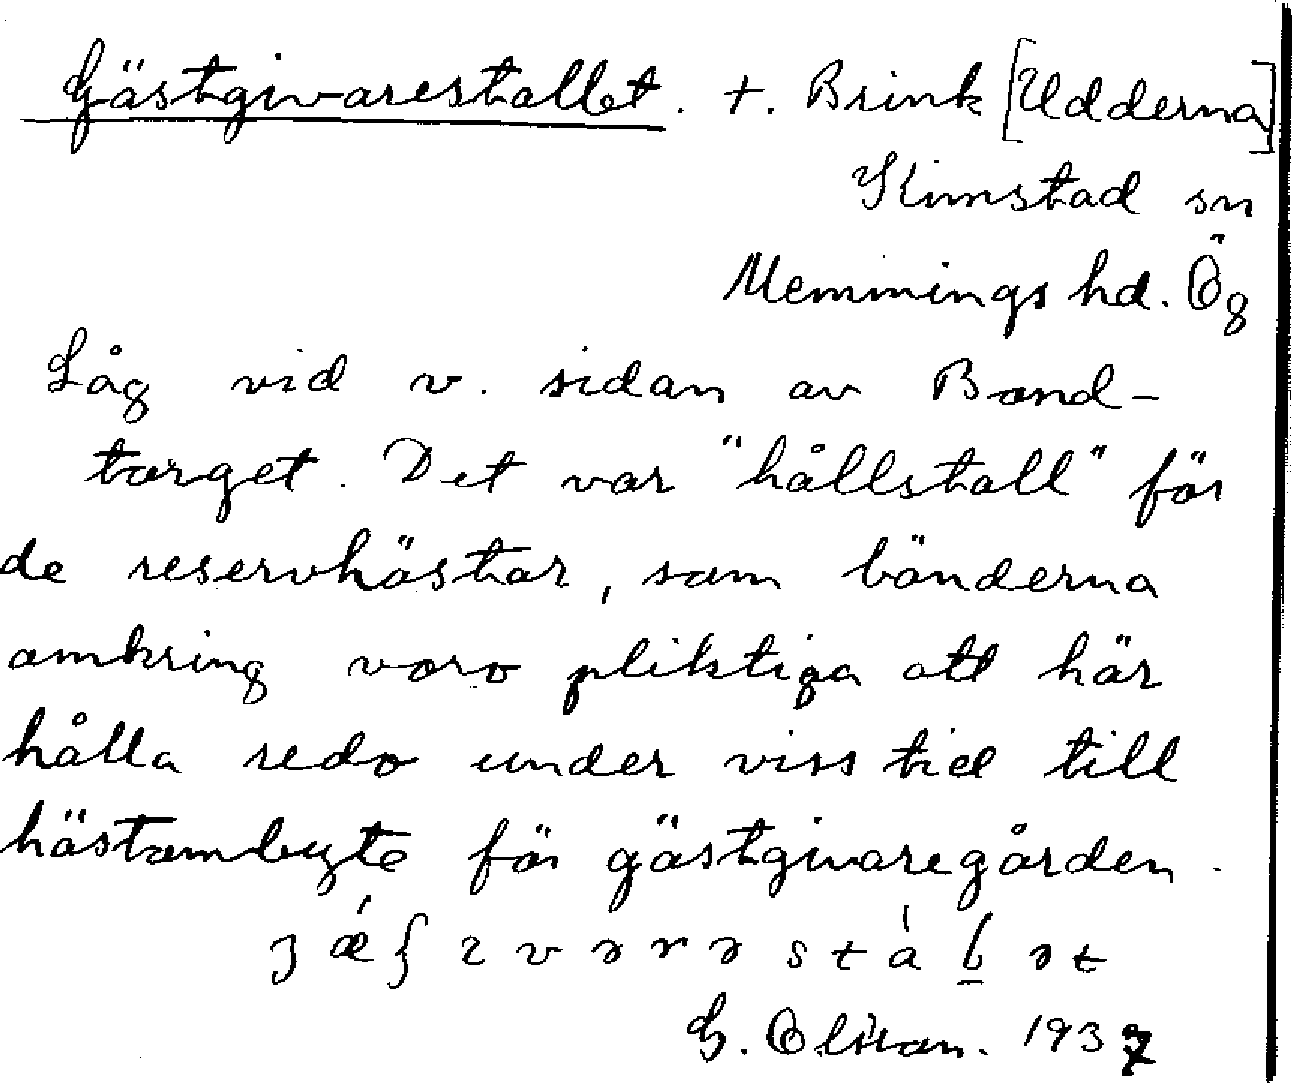 Gästgivarestallet. +. Brink [Udderna]
Kimstad sn
Memmings hd. Ög
Låg vid v. sidan av Brand-
torget. Det var "hållstall" för
de reservhästar, som bönderna
omkring voro pliktiga att här
hålla redo under viss tid till
hästombyte för gästgivaregården.
G. 1937